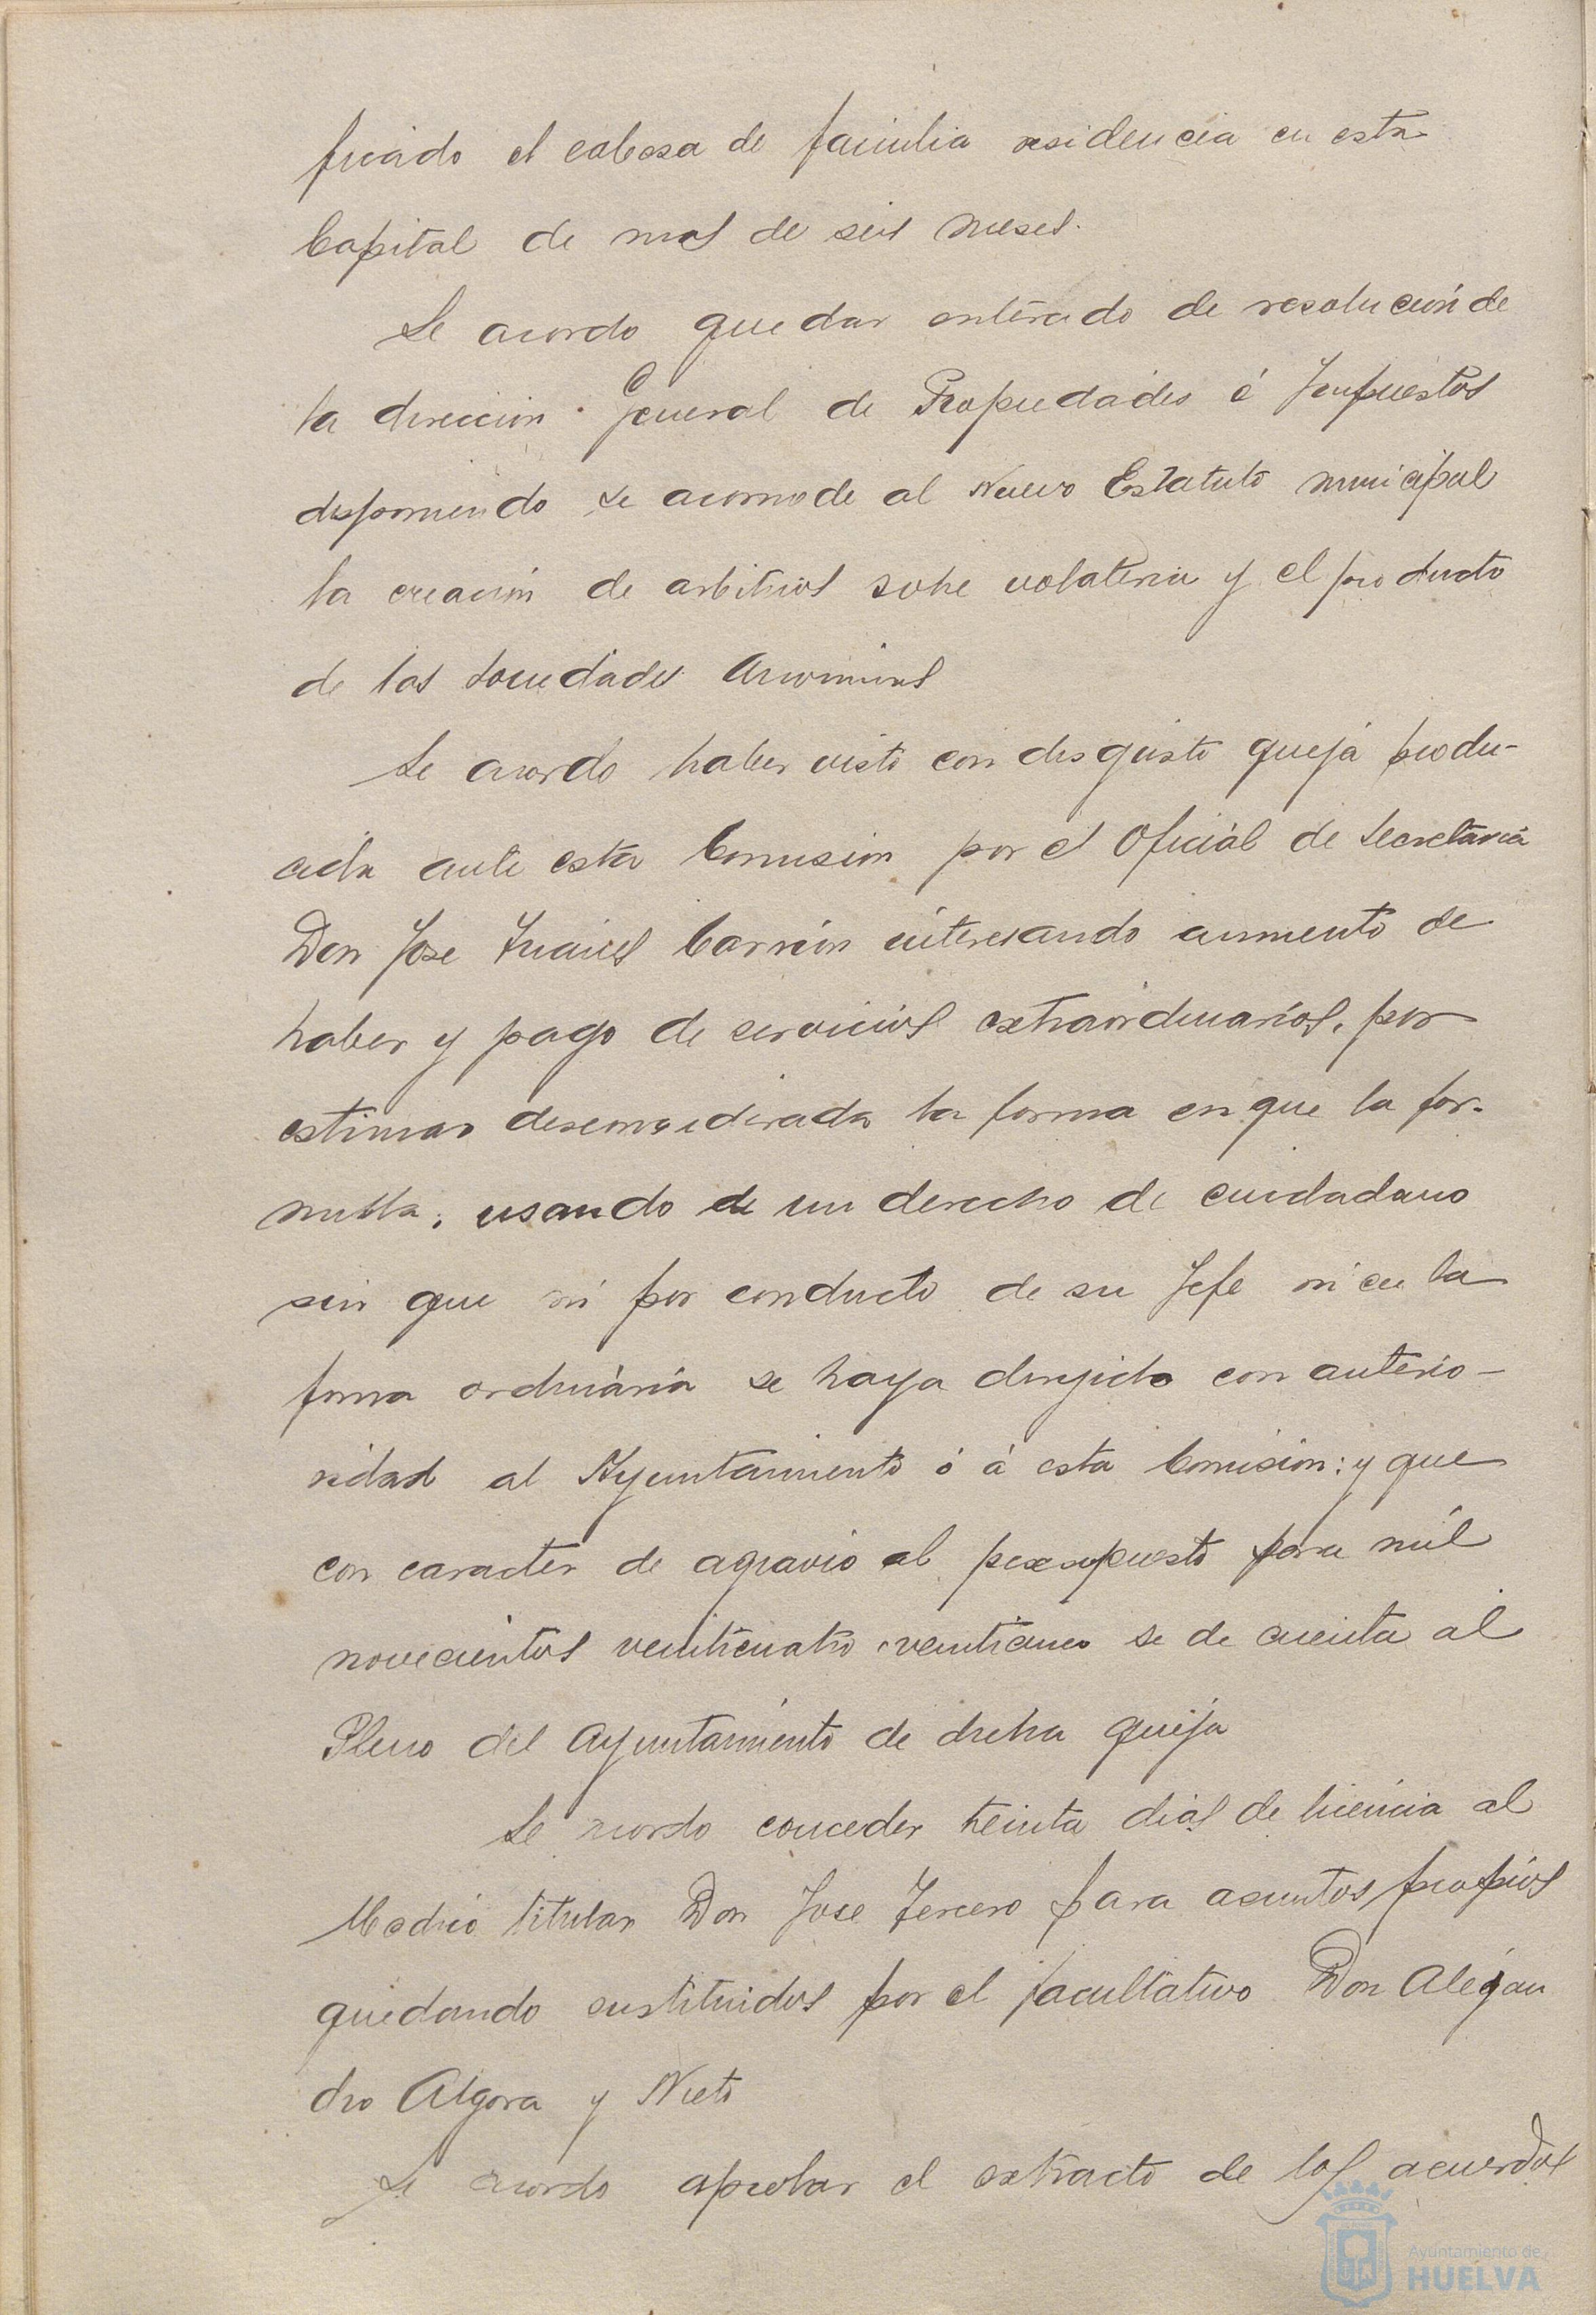 ficado el cabesa de familia residencia en esta
Capital de mas de seis meses.
Se acordo quedar enterado de resolución de
la direccion General de Propiedades é Impuestos
disponiendo se acomode al Nuevo Estatuto municipal
la creación de arbitrios sobre volateria y el producto
de las Sociedades Anonimas
Se acordo haber visto con disgusto queja produ-
cida ante esta Comision por el Oficial de Secretaria
Don Jose Carrión interesando aumento de
haber y pago de servicios extraordinarios, por
estimar desconsiderada la forma en que la for-
mula, usando de un derecho de ciudadano
sin que ni por conducto de su Jefe ni en la
forma ordinária se haya dirijido con anterio-
ridad al Ayuntamiento ó á esta Comision: y que
con caracter de agravio al presupuesto para mil
novecientos veinticuatro veinticinco se de cuenta al
Pleno del Ayuntamiento de dicha queja
Se acordo conceder treinta dias de licencia al
Medico titular Don Jose Tercero para asuntos propios
quedando sustituidos por el facultativo Don Alejan
dro Algora y Nieto
Se acordo aprobar el extracto de los acuerdos
Ayuntamiento de
HUELVA